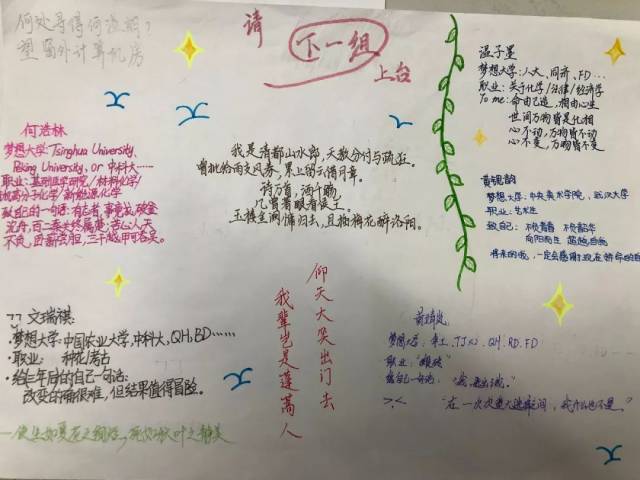 何处寻得何浩林？
望窗外计算机房
请
下一组
上台
温子墨
梦想大学：人大、同济、FD…
职业：关于化学/法律/经济学
To me：命由己造，相由心生
世间万物皆是化相
心不动，万物皆不动
心不变，万物皆不变
何浩林
梦想大学：Tsinghua University、
Peking University, or 中科大……
职业：基础医学研究/材料化学/
抗高分子化学/新能源化学
献自己的一句话：有志者，事竟成，破釜
沉舟，百二秦关终属楚；苦心人，天
不负，卧薪尝胆，三千越甲可吞吴。
我是清都山水郎，天教分付与疏狂。
曾批给雨支风券，累上留云借月章。
诗万首，酒千觞，
几曾着眼看侯王。
玉楼金阙慵归去，且插梅花醉洛阳。
黄锶韵
梦想大学：中央美术学院，武汉大学
职业：艺术生
致自己：不负青春 不负韶华
向阳而生
将来的我，一定会感谢现在拼命的自
文瑞祺：
·梦想大学：中国农业大学，中科大，QH，BD……
·职业： 种花/考古
·给三年后的自己一句话：
改变的确很难，但结果值得冒险。
一使生如夏花之绚烂，死如秋叶之静美
仰天大笑出门去
我辈岂是蓬蒿人
梦想大学：
职业：
给自己一句话：